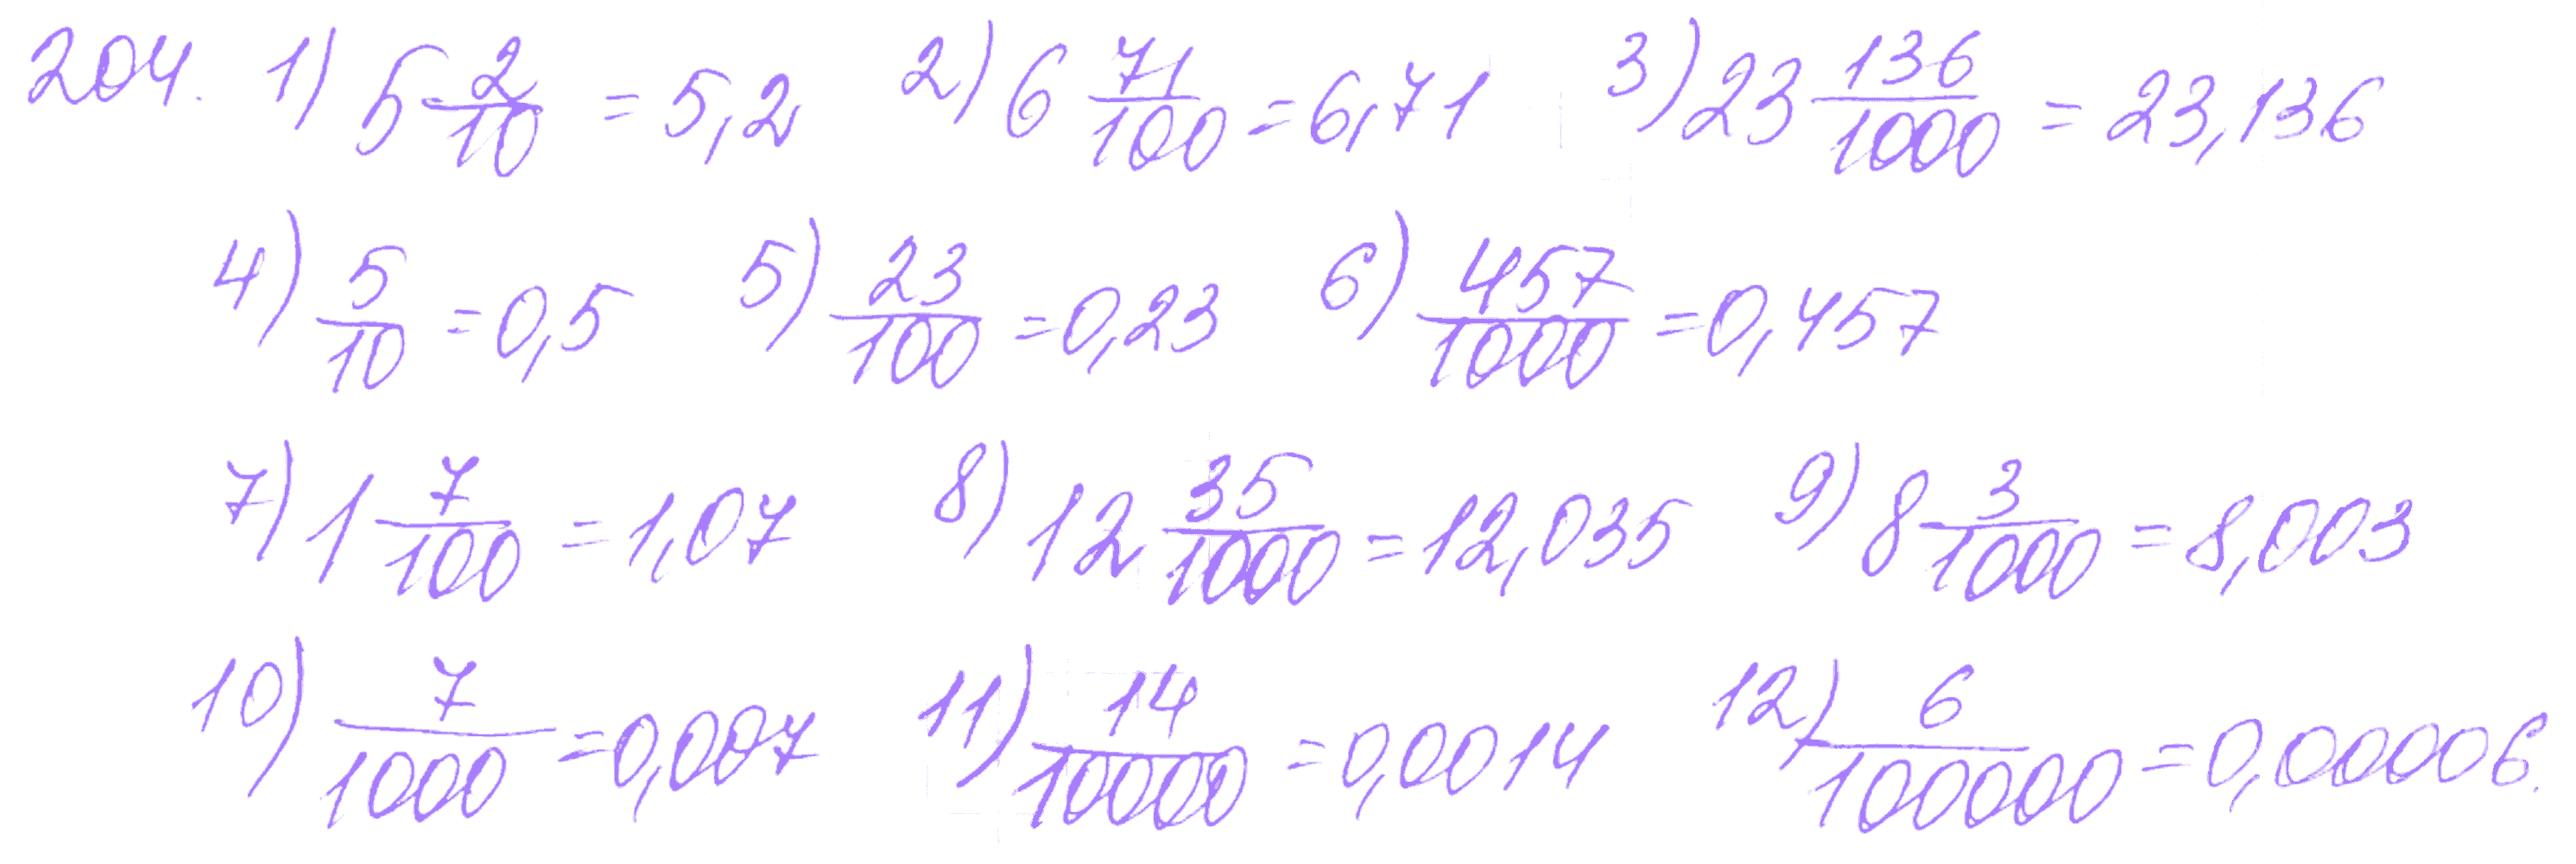 204. 1) 5 2/10 = 5,2 2) 6 71/100 = 6,71 3) 23 136/1000 = 23,136
4) 5/10 = 0,5 5) 23/100 = 0,23 6) 457/1000 = 0,457
7) 1 7/100 = 1,07 8) 12 35/1000 = 12,035 9) 8 3/1000 = 8,003
10) 7/1000 = 0,007 11) 14/10000 = 0,0014 12) 6/100000 = 0,00006.